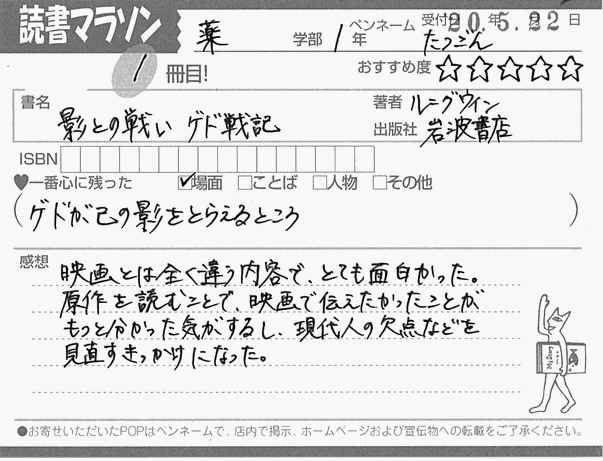 読書マラソン
薬 学部 1年 ペンネーム たつごん 受付日 20年5月22日
1冊目!
おすすめ度 ☆☆☆☆☆
書名 影との戦い ゲド戦記
著者 ル=グウィン
出版社 岩波書店
ISBN
♥一番心に残った ☑場面 □ことば □人物 □その他
(ゲドが己の影をとらえるところ)
感想 映画とは全く違う内容で、とても面白かった。
原作を読むことで、映画で伝えたかったことが
もっと分かった気がするし、現代人の欠点などを
見直すきっかけになった。
●お寄せいただいたPOPはペンネームで、店内で掲示、ホームページおよび宣伝物への転載をご了承ください。